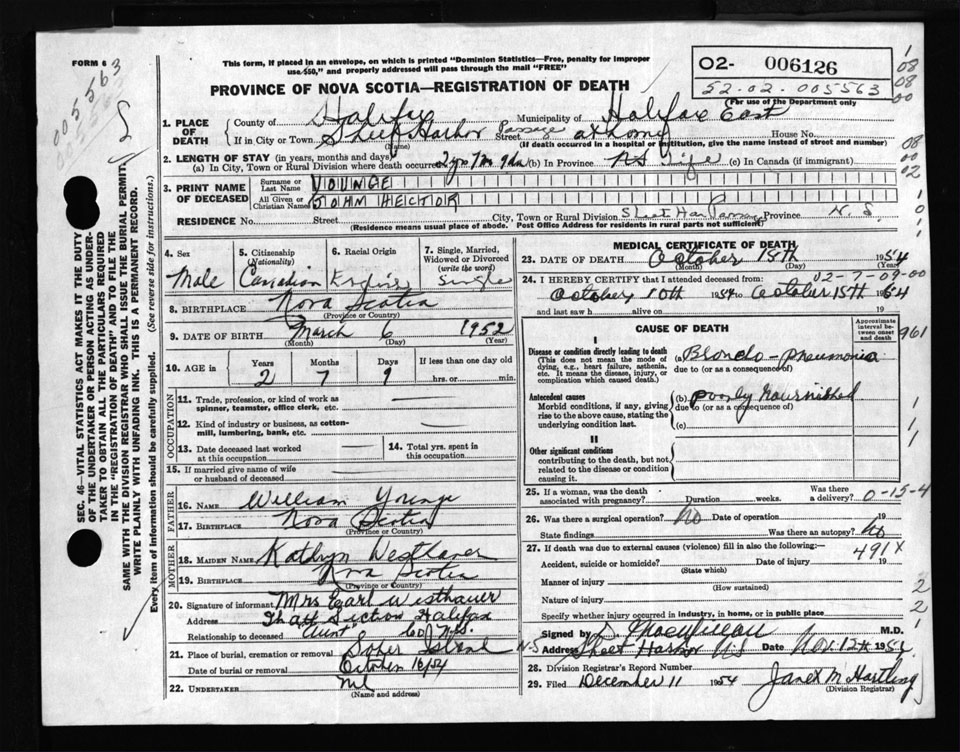 FORM 6
This form, if placed in an envelope, on which is printed "Dominion Statistics—Free, penalty for improper
use $50," and properly addressed will pass through the mail "FREE"
02- 006126
52.02.005563
(For use of the Department only
005563
PROVINCE OF NOVA SCOTIA—REGISTRATION OF DEATH
1. PLACE OF DEATH
County of Halifax Municipality of Halifax East
If in City or Town Sheet Harbor Passage Street at home House No.
(Name) (If death occurred in a hospital or institution, give the name instead of street and number)
2. LENGTH OF STAY (in years, months and days)
(a) In City, Town or Rural Division where death occurred 2 yrs 7 m 9 da (b) In Province NS life (c) In Canada (if immigrant)
3. PRINT NAME OF DECEASED
Surname or Last Name YOUNGE
All Given or Christian Names JOHN HECTOR
RESIDENCE No. Street City, Town or Rural Division Sheet Har Passage Province N. S.
(Residence means usual place of abode. Post Office Address for residents in rural parts not sufficient)
4. Sex Male
5. Citizenship (Nationality) Canadian
6. Racial Origin
7. Single, Married, Widowed or Divorced (write the word) Single
8. BIRTHPLACE Nova Scotia
(Province or Country)
9. DATE OF BIRTH March 6 1952
(Month) (Day) (Year)
10. AGE in Years 2 Months 7 Days 9 If less than one day old hrs. or min.
OCCUPATION
11. Trade, profession, or kind of work as spinner, teamster, office clerk, etc.
12. Kind of industry or business, as cotton-mill, lumbering, bank, etc.
13. Date deceased last worked at this occupation
14. Total yrs. spent in this occupation.
15. If married give name of wife or husband of deceased
FATHER
16. NAME William Younge
17. BIRTHPLACE Nova Scotia
(Province or Country)
MOTHER
18. MAIDEN NAME Kathryn Westhaver
19. BIRTHPLACE Nova Scotia
(Province or Country)
20. Signature of informant Mrs Earl Westhaver
Address Halifax
Relationship to deceased "Aunt" Co N.S.
21. Place of burial, cremation or removal Sober Island N.S
Date of burial or removal October 16/54
22. UNDERTAKER nil
(Name and address)
MEDICAL CERTIFICATE OF DEATH
23. DATE OF DEATH October 15th 1954
(Month) (Day)
24. I HEREBY CERTIFY that I attended deceased from: 02-7-09-00
October 10th 1954 to October 15th 1954
and last saw h alive on 19
CAUSE OF DEATH
Approximate interval between onset and death
I
Disease or condition directly leading to death
(This does not mean the mode of dying, e.g., heart failure, asthenia, etc. It means the disease, injury, or complication which caused death.)
(a) Broncho-pneumonia
due to (or as a consequence of)
Antecedent causes
Morbid conditions, if any, giving rise to the above cause, stating the underlying condition last.
(b) poorly nourished
due to (or as a consequence of)
(c)
II
Other significant conditions
contributing to the death, but not related to the disease or condition causing it.
25. If a woman, was the death associated with pregnancy? Duration weeks. Was there a delivery? 0-15-4
26. Was there a surgical operation? No Date of operation 19
State findings Was there an autopsy? No
27. If death was due to external causes (violence) fill in also the following:— 491X
Accident, suicide or homicide? Date of injury 19
(State which)
Manner of injury
(How sustained)
Nature of injury
Specify whether injury occurred in industry, in home, or in public place
Signed by M.D.
Address Sheet Harbor NS Date Nov. 12th 195
28. Division Registrar's Record Number
29. Filed December 11 1954 Janet M Hartling
(Division Registrar)
SEC. 46—VITAL STATISTICS ACT MAKES IT THE DUTY
OF THE UNDERTAKER OR PERSON ACTING AS UNDERTAKER TO OBTAIN ALL THE PARTICULARS REQUIRED
IN THE "REGISTRATION OF DEATH" AND TO FILE THE
SAME WITH THE DIVISION REGISTRAR WHO SHALL ISSUE THE BURIAL PERMIT.
WRITE PLAINLY WITH UNFADING INK. THIS IS A PERMANENT RECORD.
Every item of Information should be carefully supplied. (See reverse side for instructions.)